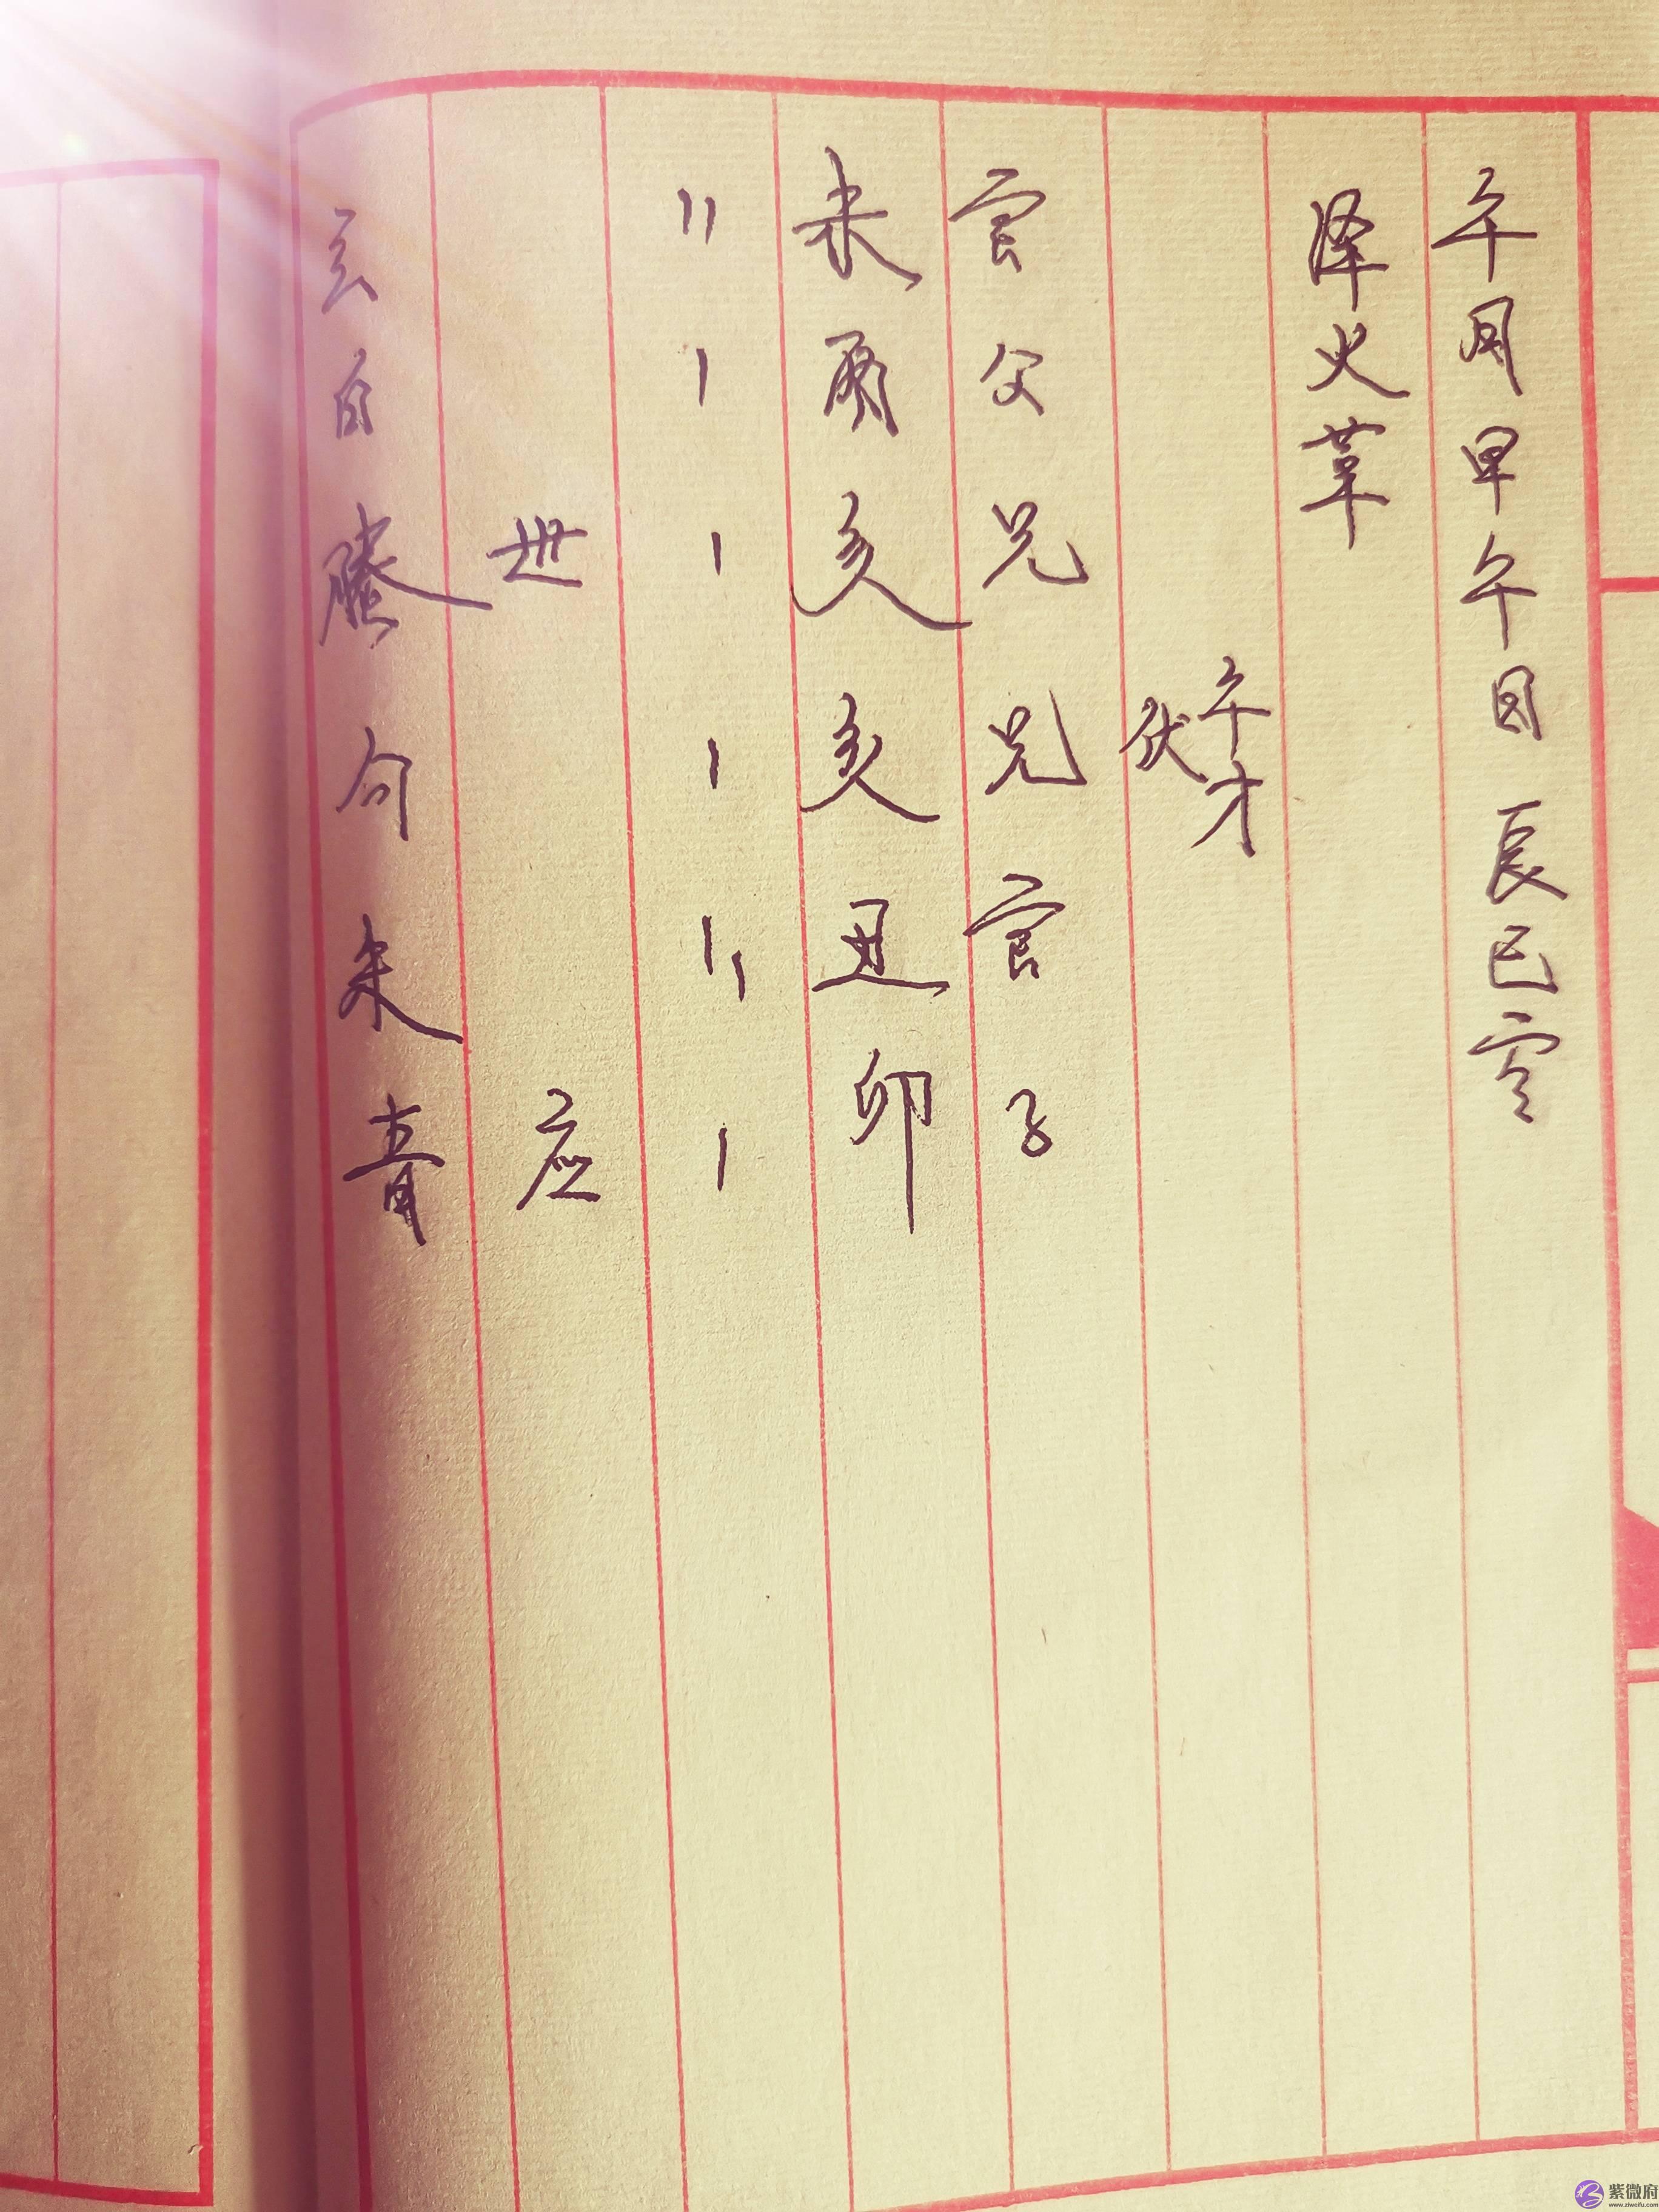 午月甲午日辰巳空
泽火革
午才
伏
官父兄兄官子
未酉亥亥丑卯
世应
玄白腾勾朱青
紫微府
www.ziweifu.com